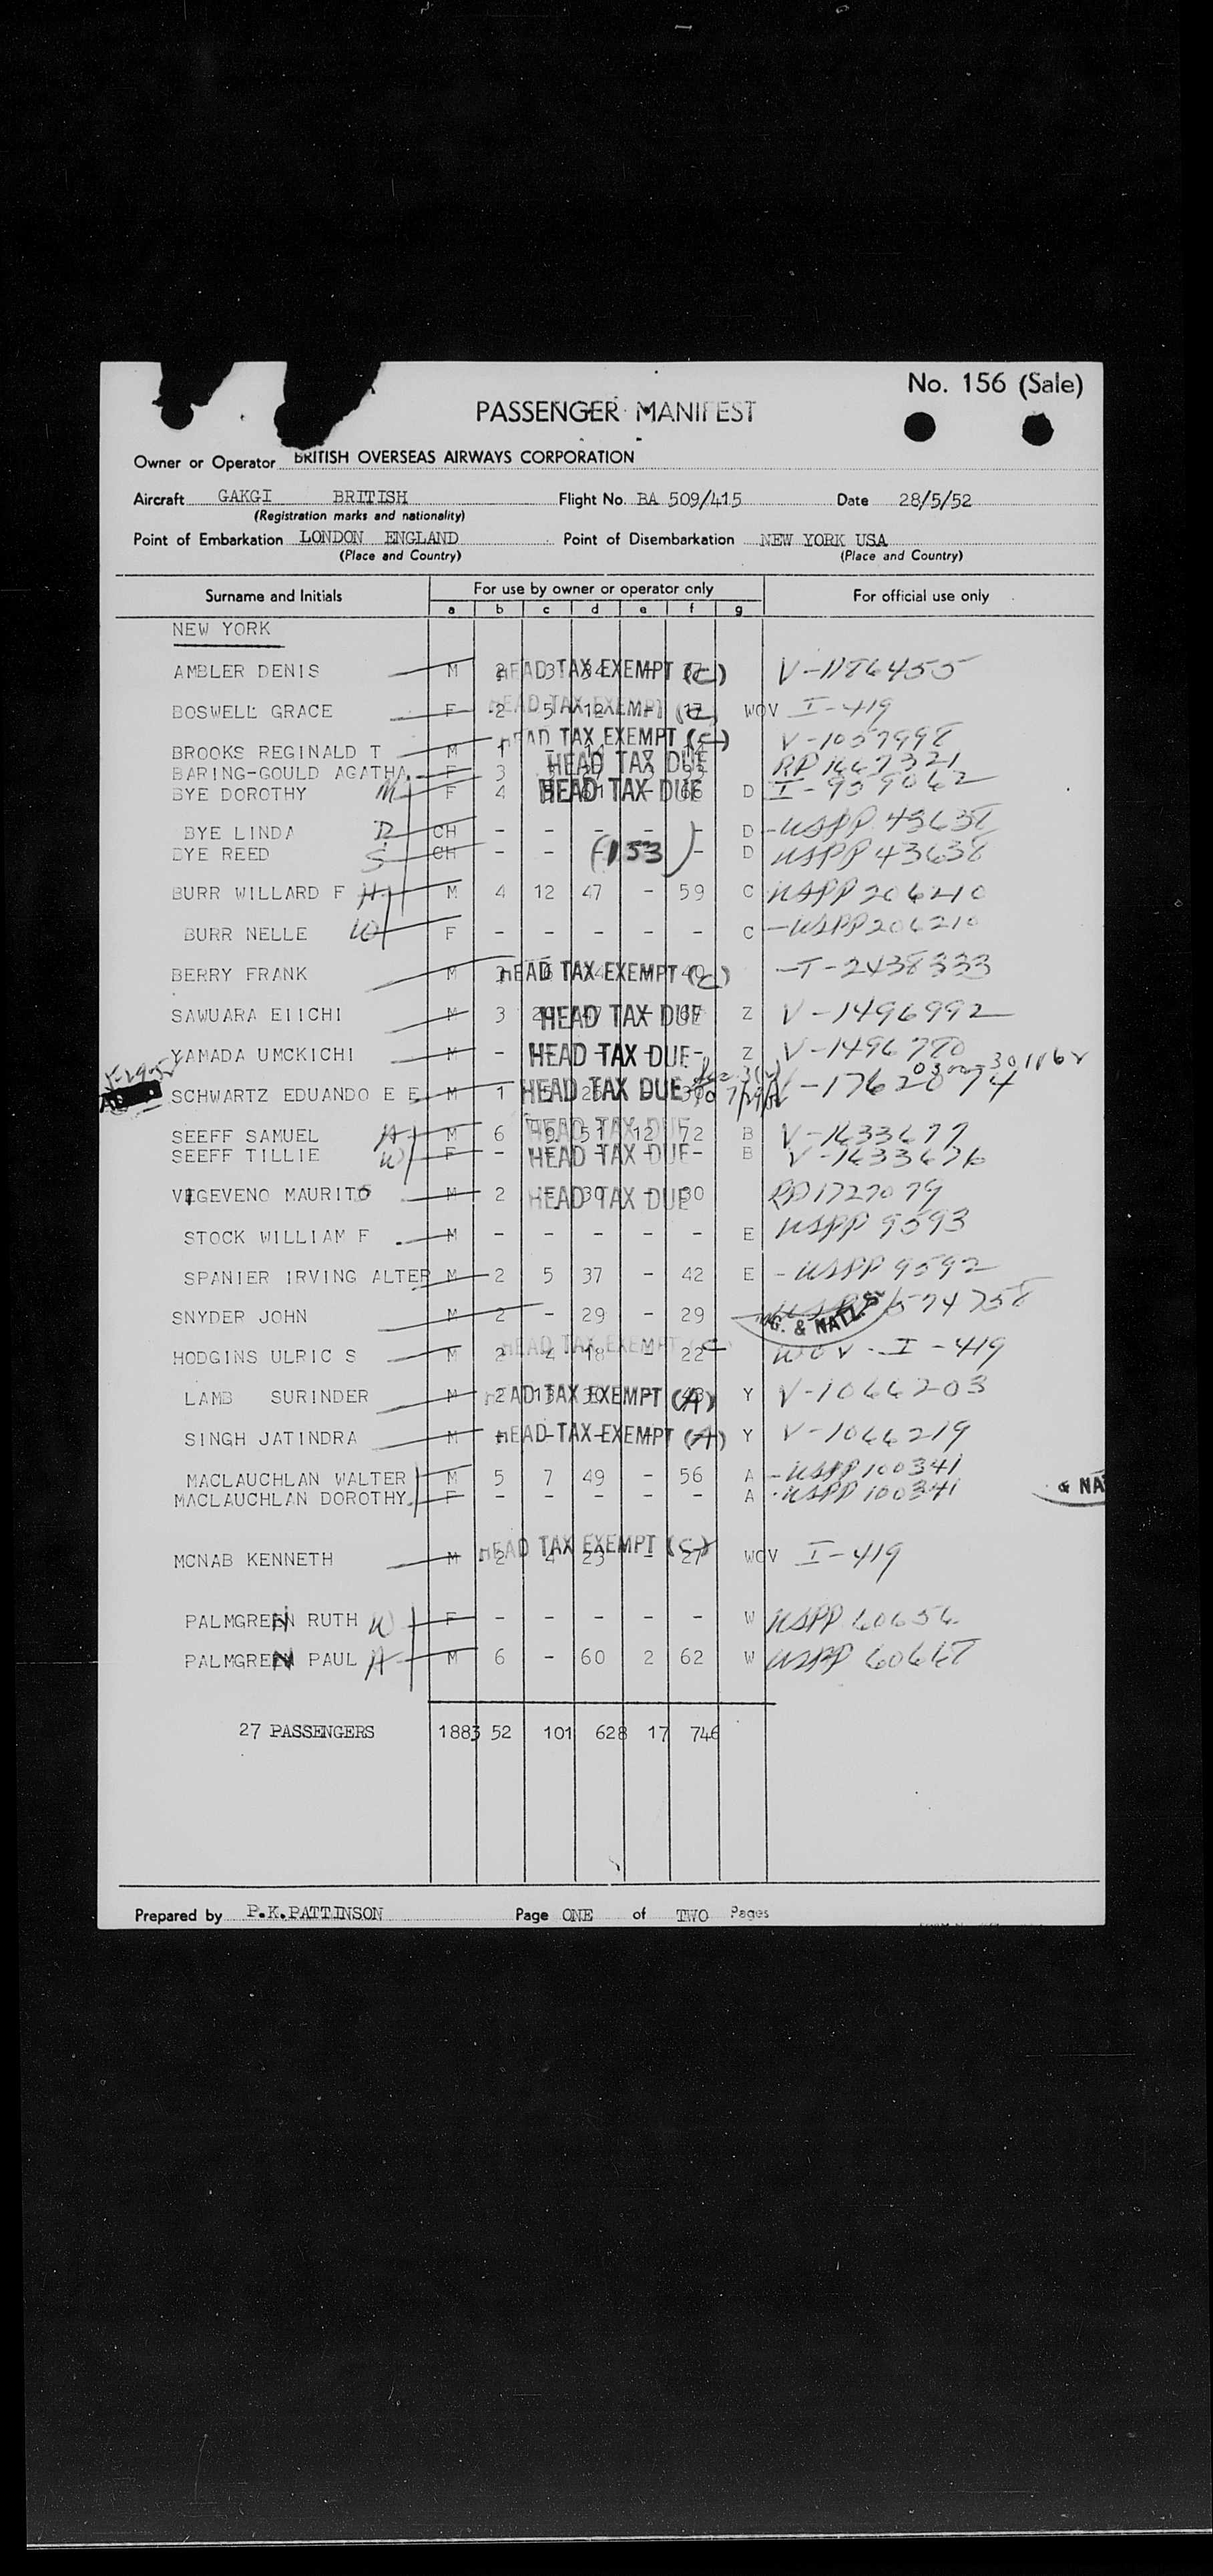 No. 156 (Sale)
PASSENGER MANIFEST
Owner or Operator BRITISH OVERSEAS AIRWAYS CORPORATION
Aircraft GAKGI BRITISH Flight No. BA 509/415 Date 28/5/52
(Registration marks and nationality)
Point of Embarkation LONDON ENGLAND Point of Disembarkation NEW YORK USA
(Place and Country) (Place and Country)
Surname and Initials For use by owner or operator only For official use only
a b c d e f g
NEW YORK
AMBLER DENIS M 2 HEAD TAX EXEMPT (C) V-1186455
BOSWELL GRACE F 2 5 12 - 17 HEAD TAX EXEMPT (C) WOV I-419
BROOKS REGINALD T M 1 HEAD TAX EXEMPT (C) V-1057998
BARING-GOULD AGATHA F 3 HEAD TAX DUE RP 1667321
BYE DOROTHY M F 4 HEAD TAX DUE 66 D I-959062
BYE LINDA D CH - - - - - D -USPP 43638
BYE REED S CH - - (153) - D USPP 43638
BURR WILLARD F H M 4 12 47 - 59 C USPP 206210
BURR NELLE W F - - - - - C -USPP 206210
BERRY FRANK M HEAD TAX EXEMPT (C) -T-2438333
SAWUARA EIICHI M 3 HEAD TAX DUE Z V-1496992
YAMADA UMCKICHI M - HEAD TAX DUE - Z V-1496780
SCHWARTZ EDUANDO E E M 1 HEAD TAX DUE V-1762074
SEEFF SAMUEL H M 6 9 51 12 72 HEAD TAX DUE B V-1633677
SEEFF TILLIE W F - HEAD TAX DUE - B V-1633676
VIGEVENO MAURITS M 2 - 30 - 30 HEAD TAX DUE RP1727079
STOCK WILLIAM F M - - - - - E USPP 9593
SPANIER IRVING ALTER M 2 5 37 - 42 E - USPP 9592
SNYDER JOHN M 2 - 29 - 29 574758
& NATZ.
HODGINS ULRIC S M 2 4 18 - 22 HEAD TAX EXEMPT C WOV - I-419
LAMB SURINDER M 2 13 30 - 43 HEAD TAX EXEMPT (A) Y V-1066203
SINGH JATINDRA M - HEAD TAX EXEMPT (A) Y V-1066219
MACLAUCHLAN WALTER M 5 7 49 - 56 A -USPP 100341
MACLAUCHLAN DOROTHY F - - - - - A -USPP 100341
& NA
MCNAB KENNETH M 2 4 23 - 27 HEAD TAX EXEMPT (C) WOV I-419
PALMGREN RUTH W F - - - - - W USPP 60656
PALMGREN PAUL H M 6 - 60 2 62 W USPP 60667
27 PASSENGERS 1883 52 101 628 17 746
Prepared by P.K.PATTINSON Page ONE of TWO Pages